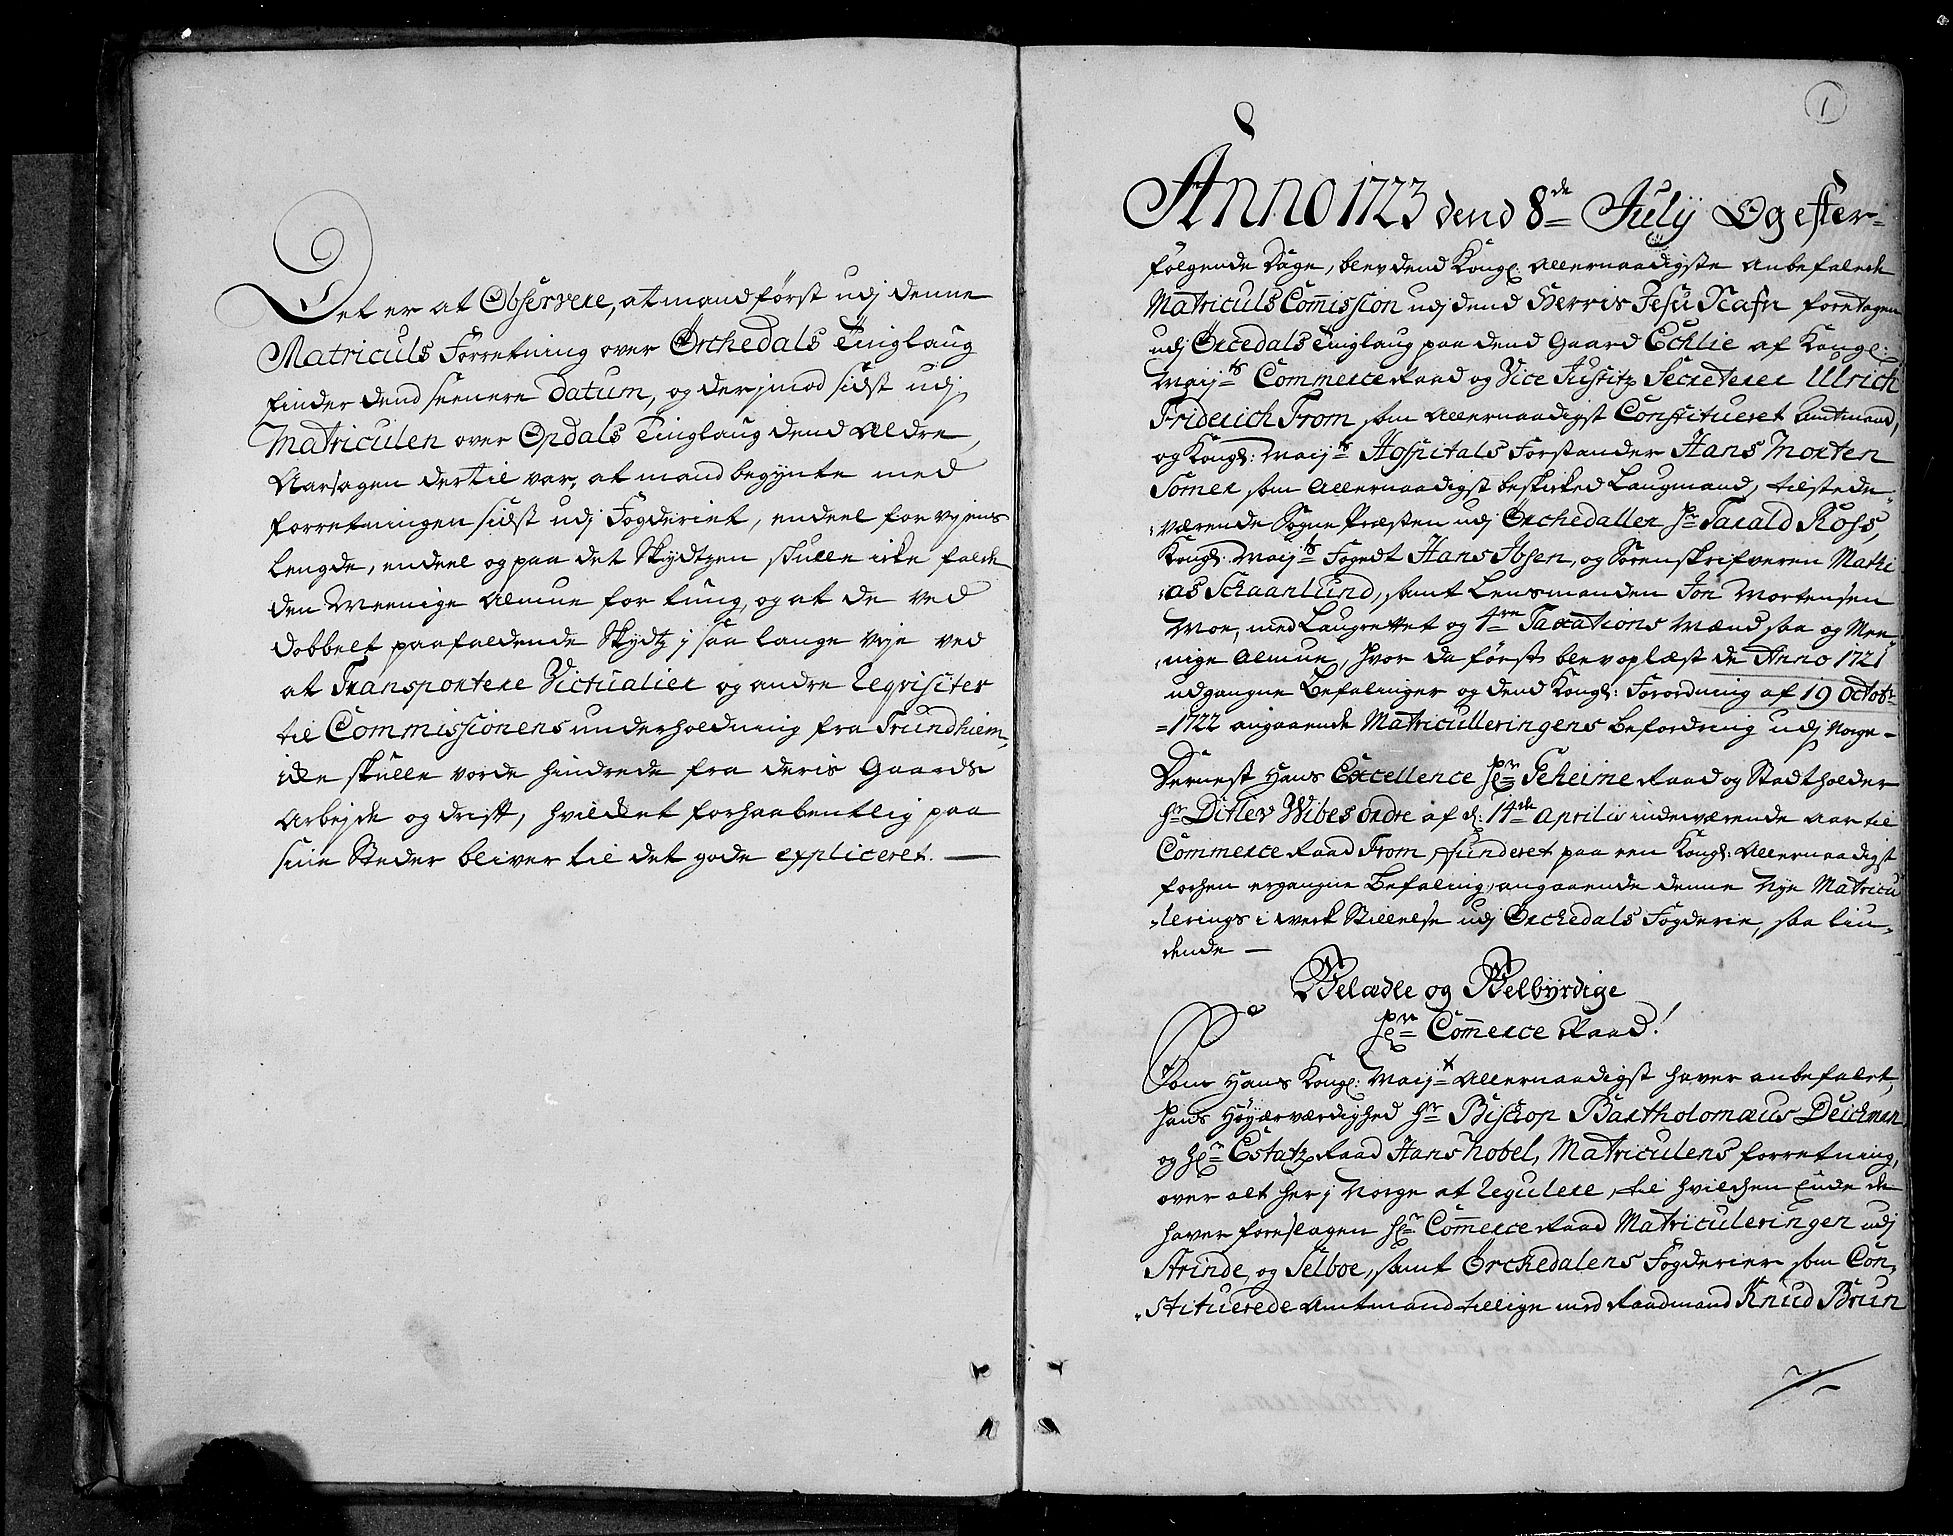 Det er at Observere, at mand först udj denne
Matriculs Forretning over Örchedals Tinglaug
finder dend seenere Datum, og derjmod sidst udj
Matriculen over Opdals Tinglaug dend Ældre,
Aarsagen dertil var, at mand begynte med
forretningen sidst udj Fogderiet, endeel for vejens
lengde, endeel og paa det Skydtzen skulle icke falde
den Meenige Almue for tung, og at de ved
dobbelt paafaldende Skydtz j saa lange veje ved
at Transportere Victualier og andre Reqvisiter
til Commissionens underholdning fra Trundhiem,
icke skulle vorde hindrede fra deris Gaards
Arbejde og drift, hvilcket forhaabentlig paa
sine Steder bliver til det gode expliceret. —
1
Anno 1723 dend 8de Julij Og efter-
fölgende Dage, blev dend Kongl: Allernaadigste Anbefalede
Matriculs Comission udj dend Herris Jesu Nafn foretagen
udj Örcedals Tinglaug paa dend Gaard Echlie af Kongl:
Maijts Commerce Raad og Vice Justitz Secreterer Ulrich
Friderich From som Allernaadigst Constitueret Amtmand,
og Kongl: Maijts Hospitals Forstander Hans Morten
Somer som Allernaadigst beskicked Laugmand, tilstede-
værende Sogne Præsten udj Örchedallen Hr Tarald Ross,
Kongl: Maijts Fogedt Hans Ibsen, og Sorenskrifveren Mathi
as Schaanlund, samt Lensmanden Jon Mortensen
Moe, med Laugrettet og 4re Taxations Mænd saa og Mee-
nige Almue, hvor da först blev oplæst de Anno 1721
udgangne Befalinger og dend Kongl: Forordning af 19 Octobr
1722 angaaende Matriculleringens Befordring udj Norge-
Dernest Hans Excellence Hr Geheime Raad og Stadtholder
Hr Ditlev Wibes ordre af d: 14de Aprilis indeværende Aar til
Commerce Raad From, funderet paa een Kongl: Allernaadigst
forhen ergangne Befaling, angaaende denne Nye Matricu
lerings i werk Stillelse udj Örchedals Fogderie, saa liu-
dende —
Velædle og Velbyrdige
Hr Comerce Raad!
Som Hans Kongl: Maijt Allernaadigst haver anbefalet,
Hans Höyærværdighed Hr Biskop Bartholomæus Deichman
og Hr Estatz Raad Hans Nobel, Matriculens forretning,
over alt her j Norge at Regulere, til hvilchen Ende de
haver foreslagen Hr Comerce Raad Matriculeringen udj
Strinde, og Selboe, samt Örchedalens Fogderier som Con-
stituerede Amtmand tillige med Raadmand Knud Brun